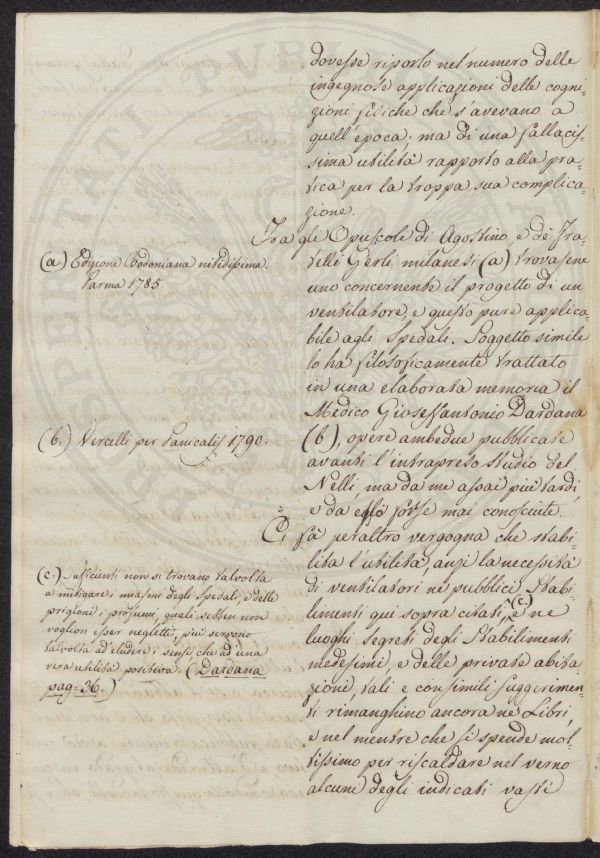 dovesse riposto nel numero delle
ingegnose applicazioni delle cogni-
zioni fisiche che s'avevano a
quell'epoca; ma di una fallacis-
sima utilità rapporto alla pra-
tica per la troppa sua complica-
zione.
Tra gli Opuscoli di Agostino, e de' Fra-
telli Gerli milanesi (a) trovasene
uno concernente il progetto di un
ventilatore, e questo pure applica-
bile agli Spedali. Soggetto simile
lo ha filosoficamente trattato
in una elaborata memoria il
Medico Gioseffantonio Dardana
(b), opere ambedue pubblicate
avanti l'intrapreso studio del
Nelli, ma da me assai più tardi,
e da esso forse mai conosciute.
Ci fà peraltro vergogna che stabi-
lita l'utilità, anzi la necessità
di ventilatori ne' pubblici Stabi-
limenti qui sopra citati, (c) e ne'
luoghi segreti degli Stabilimenti
medesimi, e delle private abita-
zioni, tali e consimili suggerimen-
ti rimanghino ancora ne' Libri,
e nel mentre che si spende mol-
tissimo per riscaldare nel verno
alcuni degli indicati vasti
(a) Edizione Bodoniana nitidissima.
Parma 1785.
(b.) Vercelli per Panicalis 1790.
(c.) Sufficienti non si trovano talvolta
a mitigare i miasmi degli Spedali, e delle
prigioni i profumi, quali sebben non
voglion esser negletti, più servono
talvolta ad eludere i sensi che ad una
vera utilità positiva. (Dardana
pag: 36.)